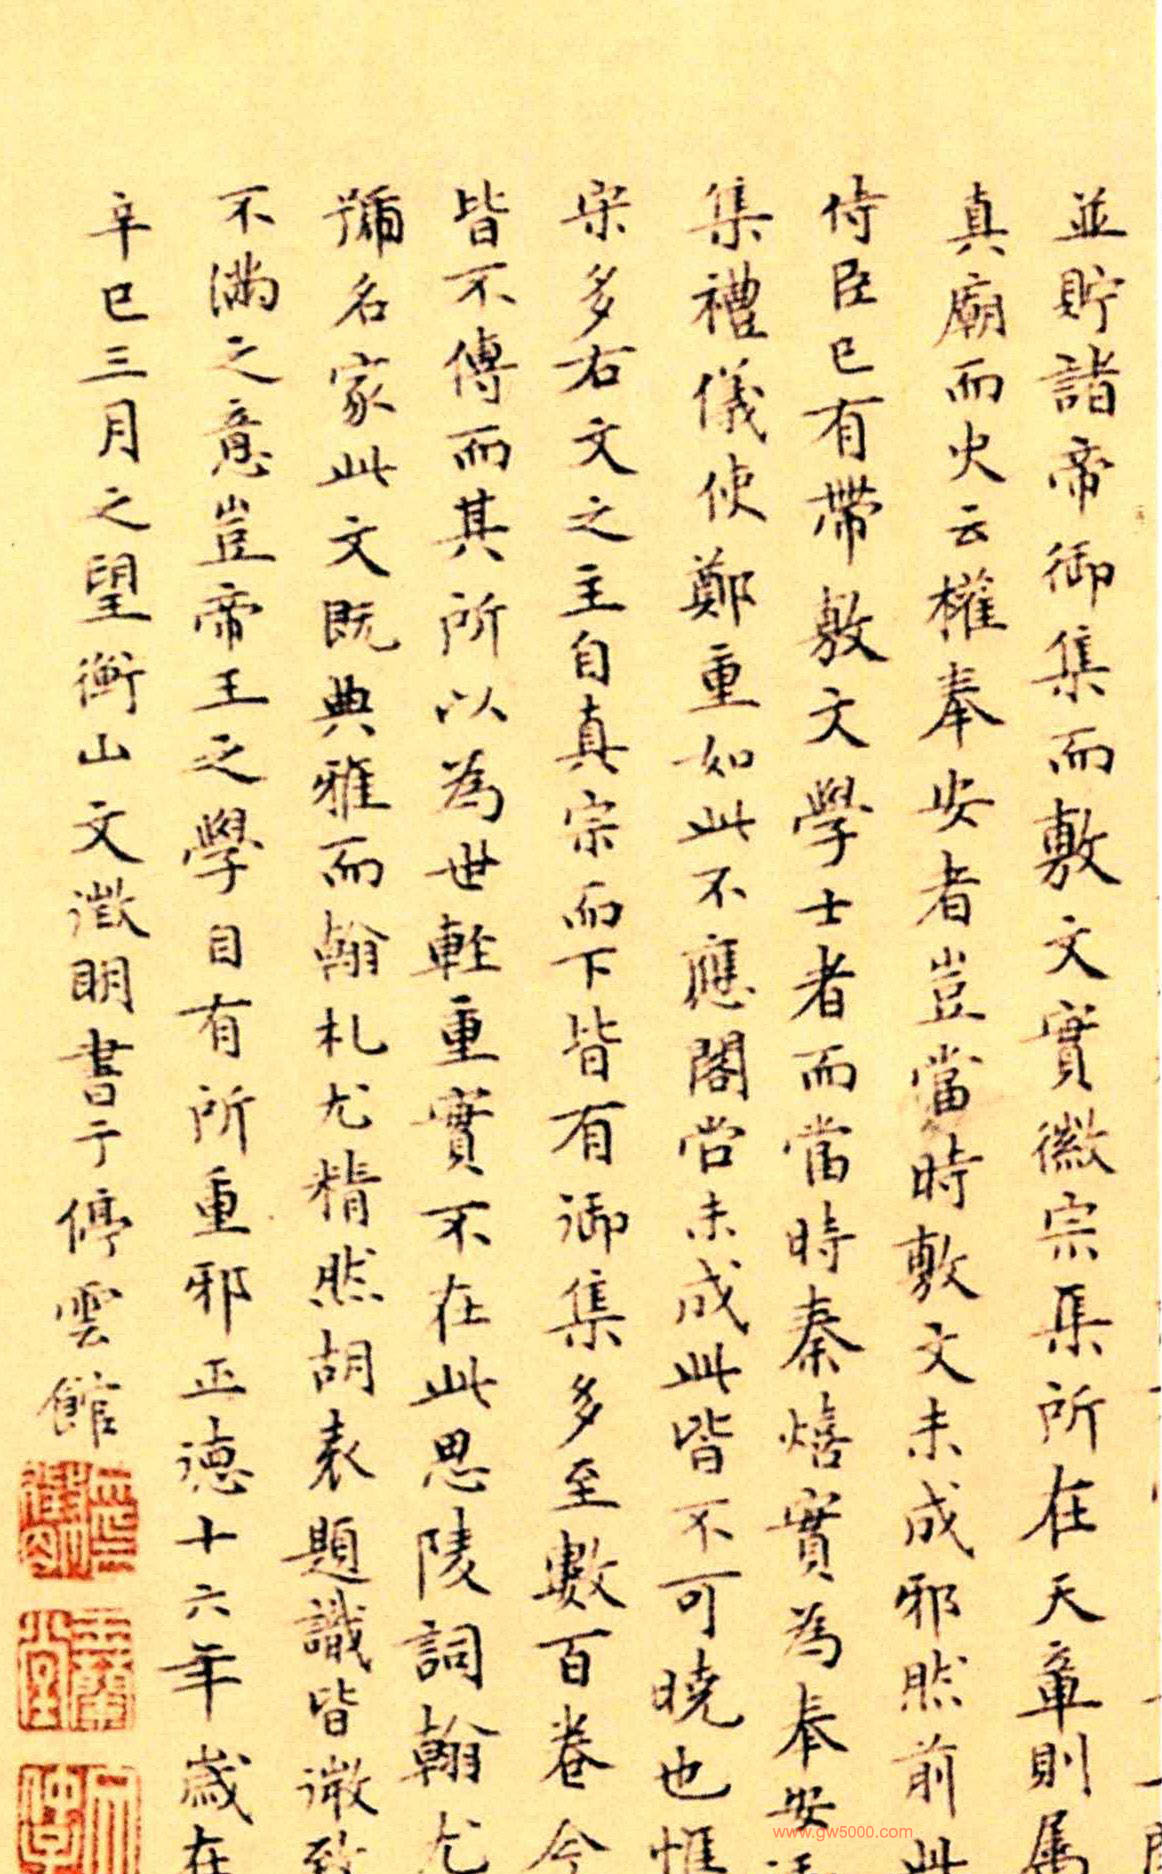 並貯諸帝御集而敷文實徽宗集所在天章則属
真廟而火云權奉安者豈當時敷文未成邪然前此
侍臣已有帶敷文學士者而當時秦熺實為奉安
集禮儀使鄭重如此不應閣尚未成此皆不可曉也惟
宋多右文之主自真宗而下皆有御集多至數百卷今
皆不傳而其所以為世輕重實不在此思陵詞翰尤
號名家此文既典雅而翰札尤精然胡表題識皆微致
不滿之意豈帝王之學自有所重邪正德十六年歲在
辛巳三月之望衡山文徵明書于停雲館
www.gw5000.com